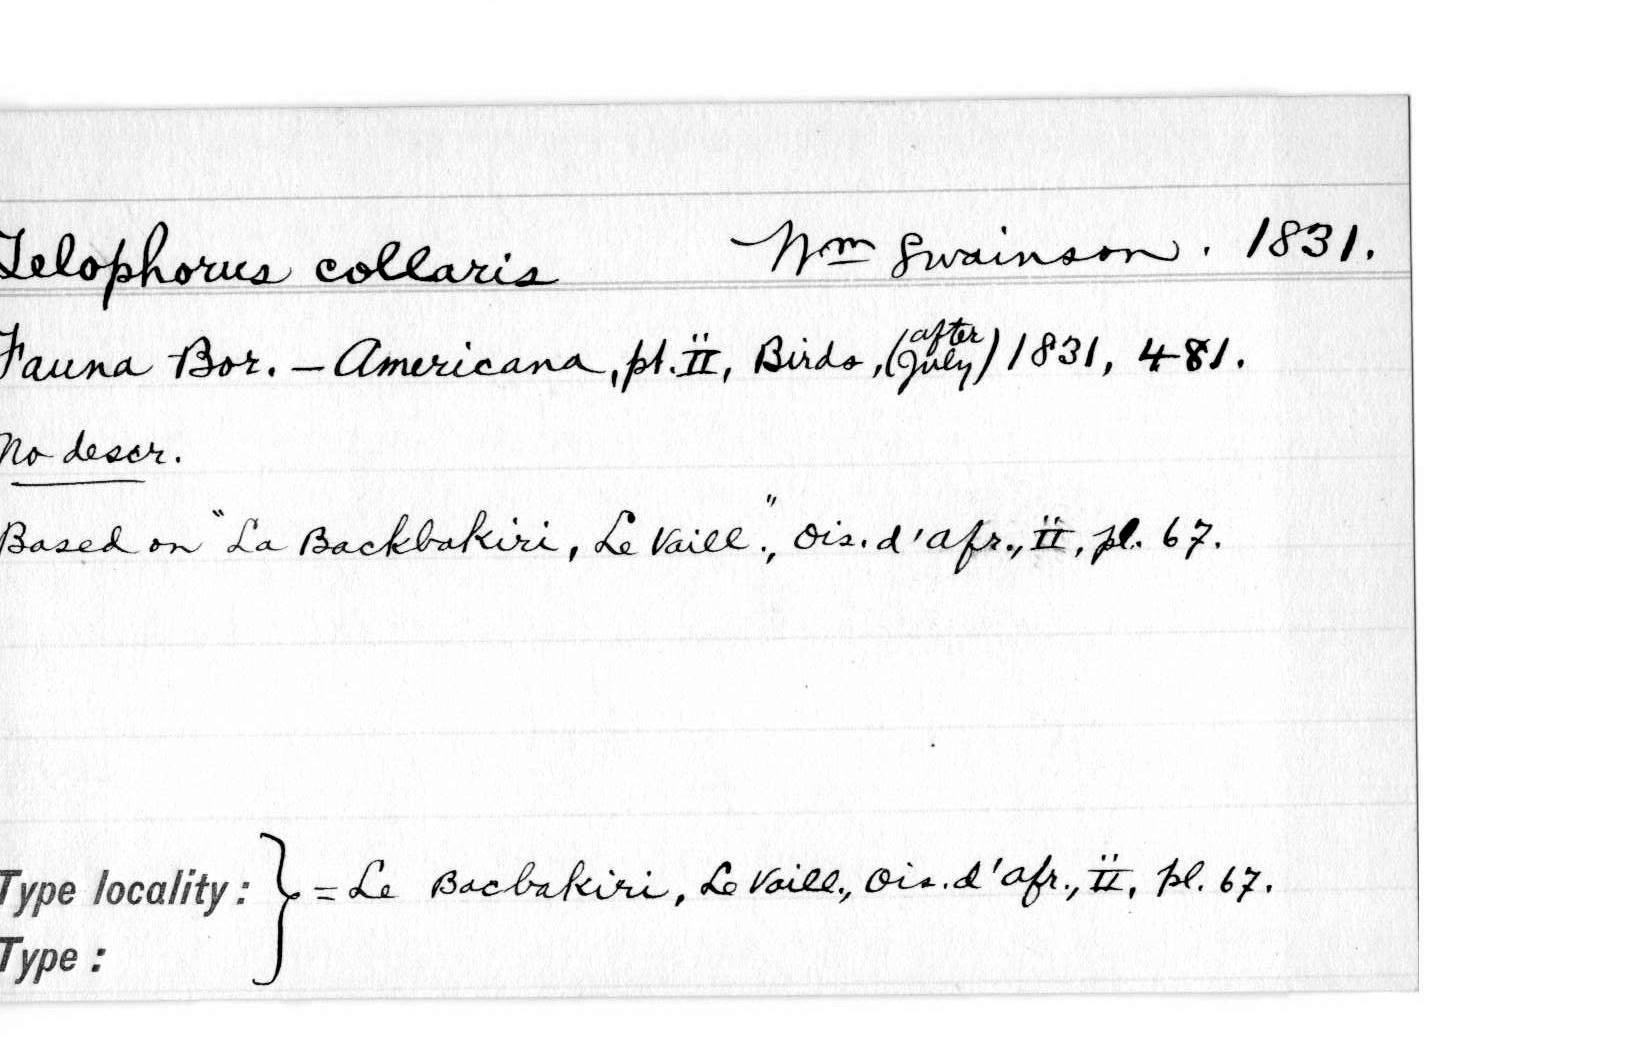 Telophorus collaris Wm Swainson. 1831.
Fauna Bor. – Americana, pt. II, Birds, (after July) 1831, 481.
No descr.
Based on "La Backbakiri, Le Vaill.", Ois. d'Afr., II, pl. 67.
Type locality: } = Le Bacbakiri, Le Vaill., Ois. d'Afr., II, pl. 67.
Type: